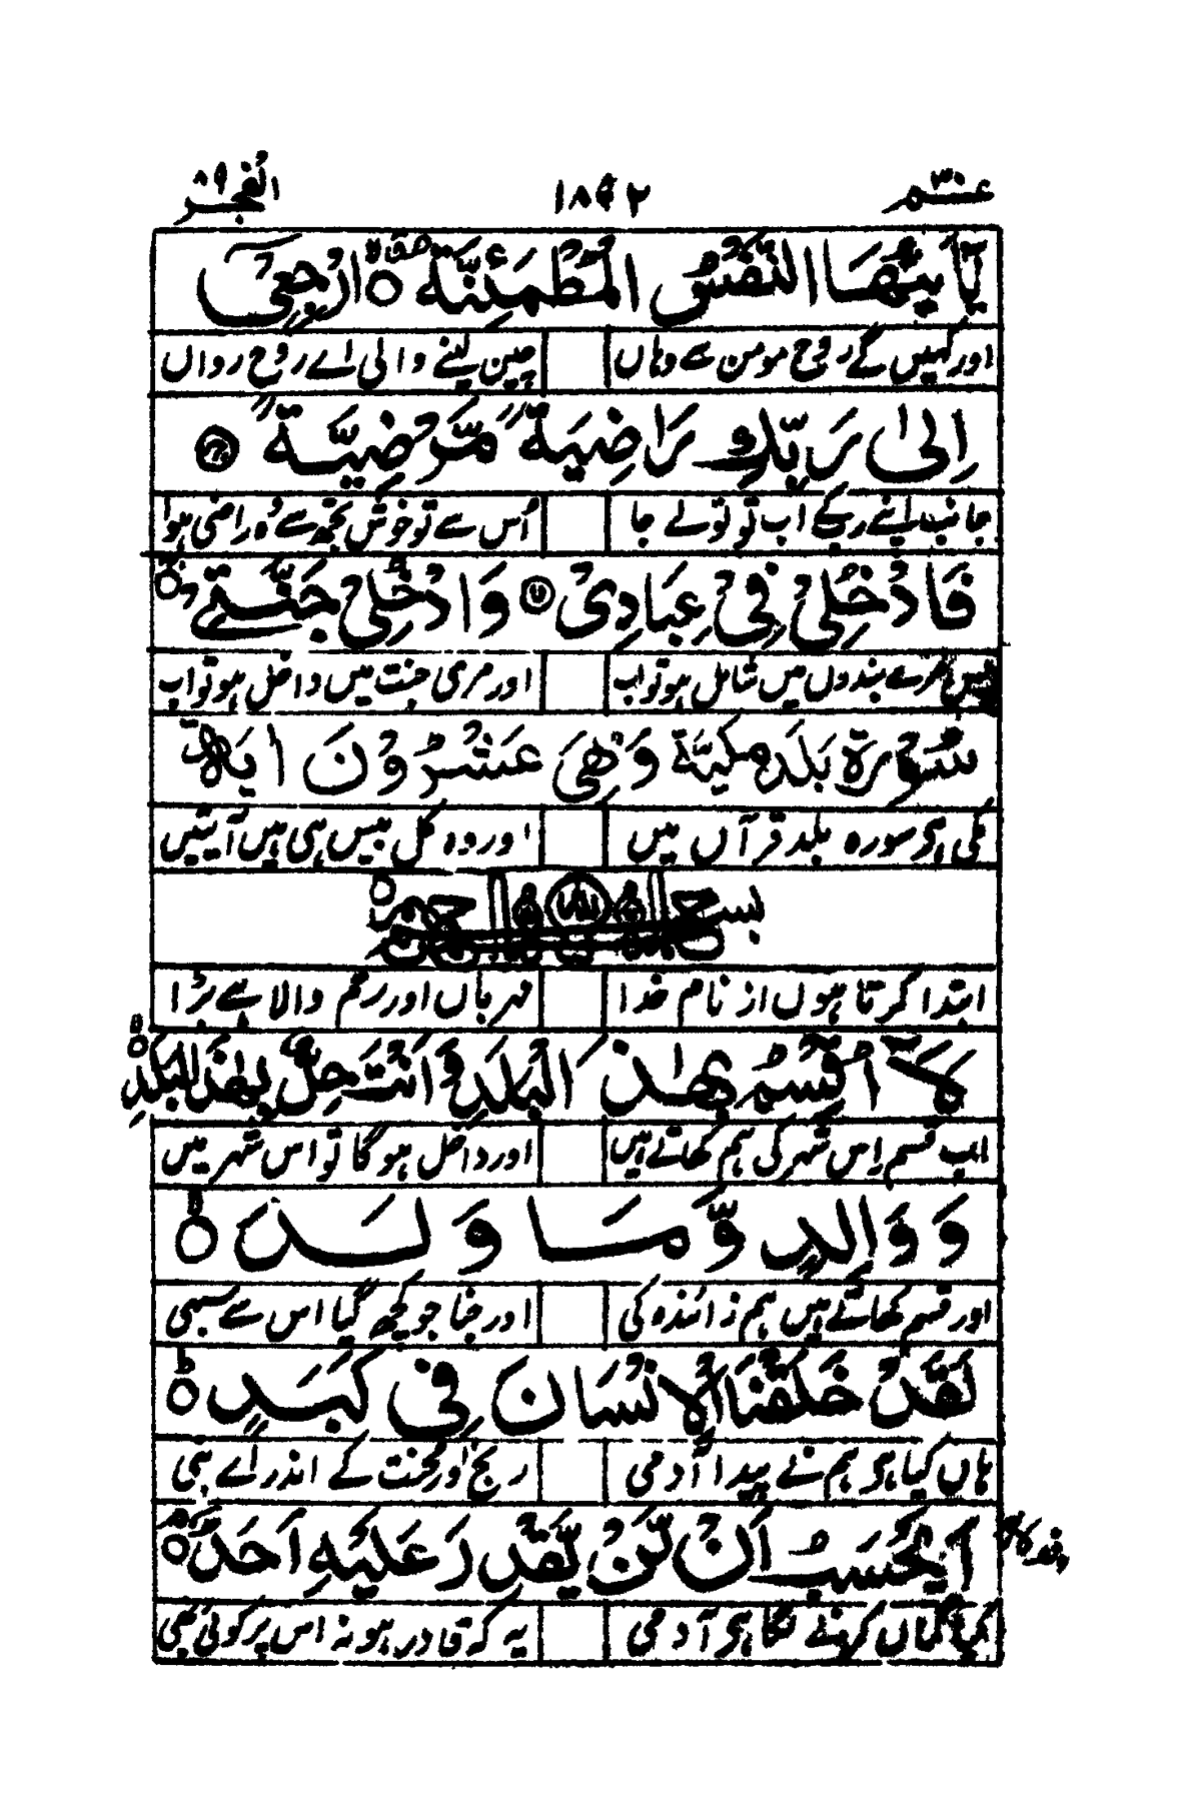 عمّ ۳۰ ۱۸۹۲ الفجر ۸۹
يٰٓاَيَّتُهَا النَّفْسُ الْمُطْمَئِنَّةُ ارْجِعِيْٓ
اور کہیں گے روح مومن سے وہاں چین لینے والی اے روح رواں
اِلٰى رَبِّكِ رَاضِيَةً مَّرْضِيَّةً
جانب اپنے رب کے اب تو تو لے جا اُس سے تو خوش تجھ سے وُہ راضی ہوا
فَادْخُلِيْ فِيْ عِبَادِيْ وَادْخُلِيْ جَنَّتِيْ
پس مرے بندوں میں شامل ہو تو اب اور مری جنت میں داخل ہو تو اب
سُوْرَةُ بَلَد مَكِّيَّةٌ وَهِيَ عِشْرُوْنَ اٰيَة
مکی ہے سورہ بلد قرآں میں اور وہ کل بیس ہی ہیں آیتیں
بسم الله الرحمن الرحيم
ابتدا کرتا ہوں از نام خدا مہرباں اور رحم والا ہے بڑا
لَآ اُقْسِمُ بِهٰذَا الْبَلَدِ وَاَنْتَ حِلٌّۢ بِهٰذَا الْبَلَدِ
اب قسم اِس شہر کی ہم کھاتے ہیں اور داخل ہوگا تو اس شہر میں
وَوَالِدٍ وَّمَا وَلَدَ
اور قسم کھاتے ہیں ہم زائندہ کی اور جنا جو کچھ گیا اس سے سبھی
لَقَدْ خَلَقْنَا الْاِنْسَانَ فِيْ كَبَدٍ
ہاں کیا ہے ہم نے پیدا آدمی رنج اور محنت کے اندر اے نبی
اَيَحْسَبُ اَنْ لَّنْ يَّقْدِرَ عَلَيْهِ اَحَدٌ
کیا گماں کرنے لگا ہے آدمی یہ کہ قادر ہو نہ اس پر کوئی بھی